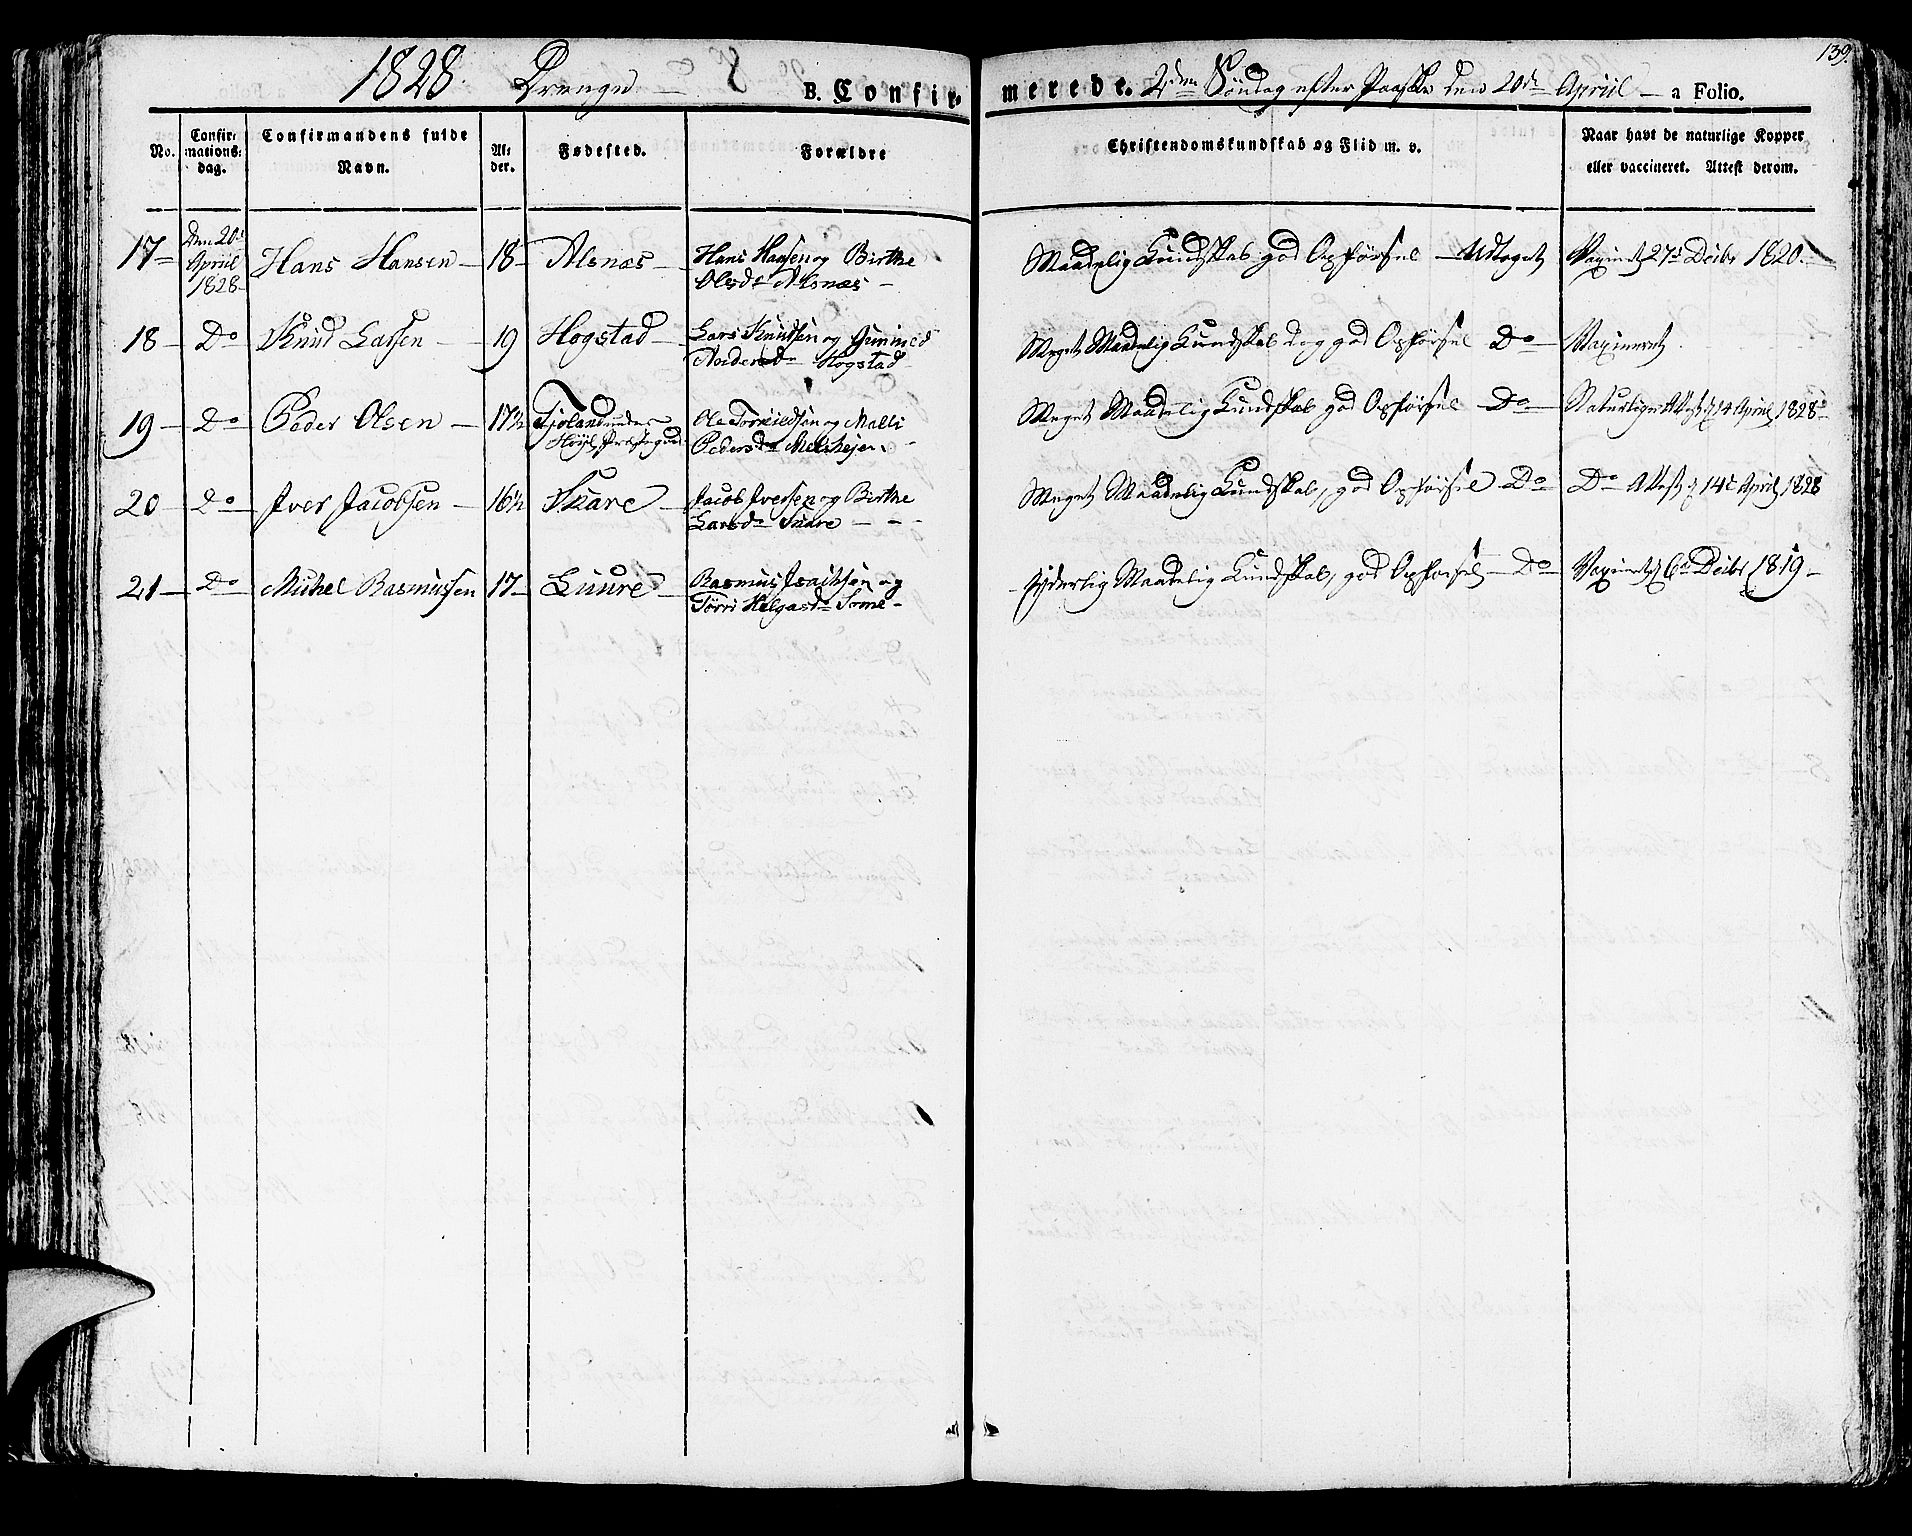 1828 Drenge B. Confir-
merede. 2den Søndag efter Paaske den 20de Apriil a Folio.
139.
No.
Confir-
mations-
dag.
Confirmandens fulde
Navn.
Al-
der.
Fødested.
Forældre
Christendomskundskab og Flid m. v.
Naar havt de naturlige Kopper
eller vaccineret. Attest derom.
17 Den 20de April 1828 Hans Hansen 18 Alsnæs Hans Hansen og Birthe
Olsdr Alsnæs Maadelig Kundskab god Opførsel Udtoget Vaxinet 27de Decbr 1820
18 Do Knud Larsen 19 Hogstad Lars Knudsen og Gunnild
Hogstad Meget Maadelig Kundskab dog god Opførsel Do Vaxineret
19 Do Peder Olsen 17½ Tjøland under
Høyl. Præstegield Ole og Malli
Pedersdr Meget Maadelig Kundskab god Opførsel Do Naturlige Attest 14 April 1828
20 Do Iver Jacobsen 16½ Skare Jacob Iversen og Birthe
Larsdr Skare Meget Maadelig Kundskab, god Opførsel Do Do Attest 14de April 1828
21 Do Michel Rasmussen 17 Luure Rasmus Isaiksen og
Tørri Helgasdr Sømе Yderlig Maadelig Kundskab, god Opførsel Do Vaxinet 6te Decbr 1819